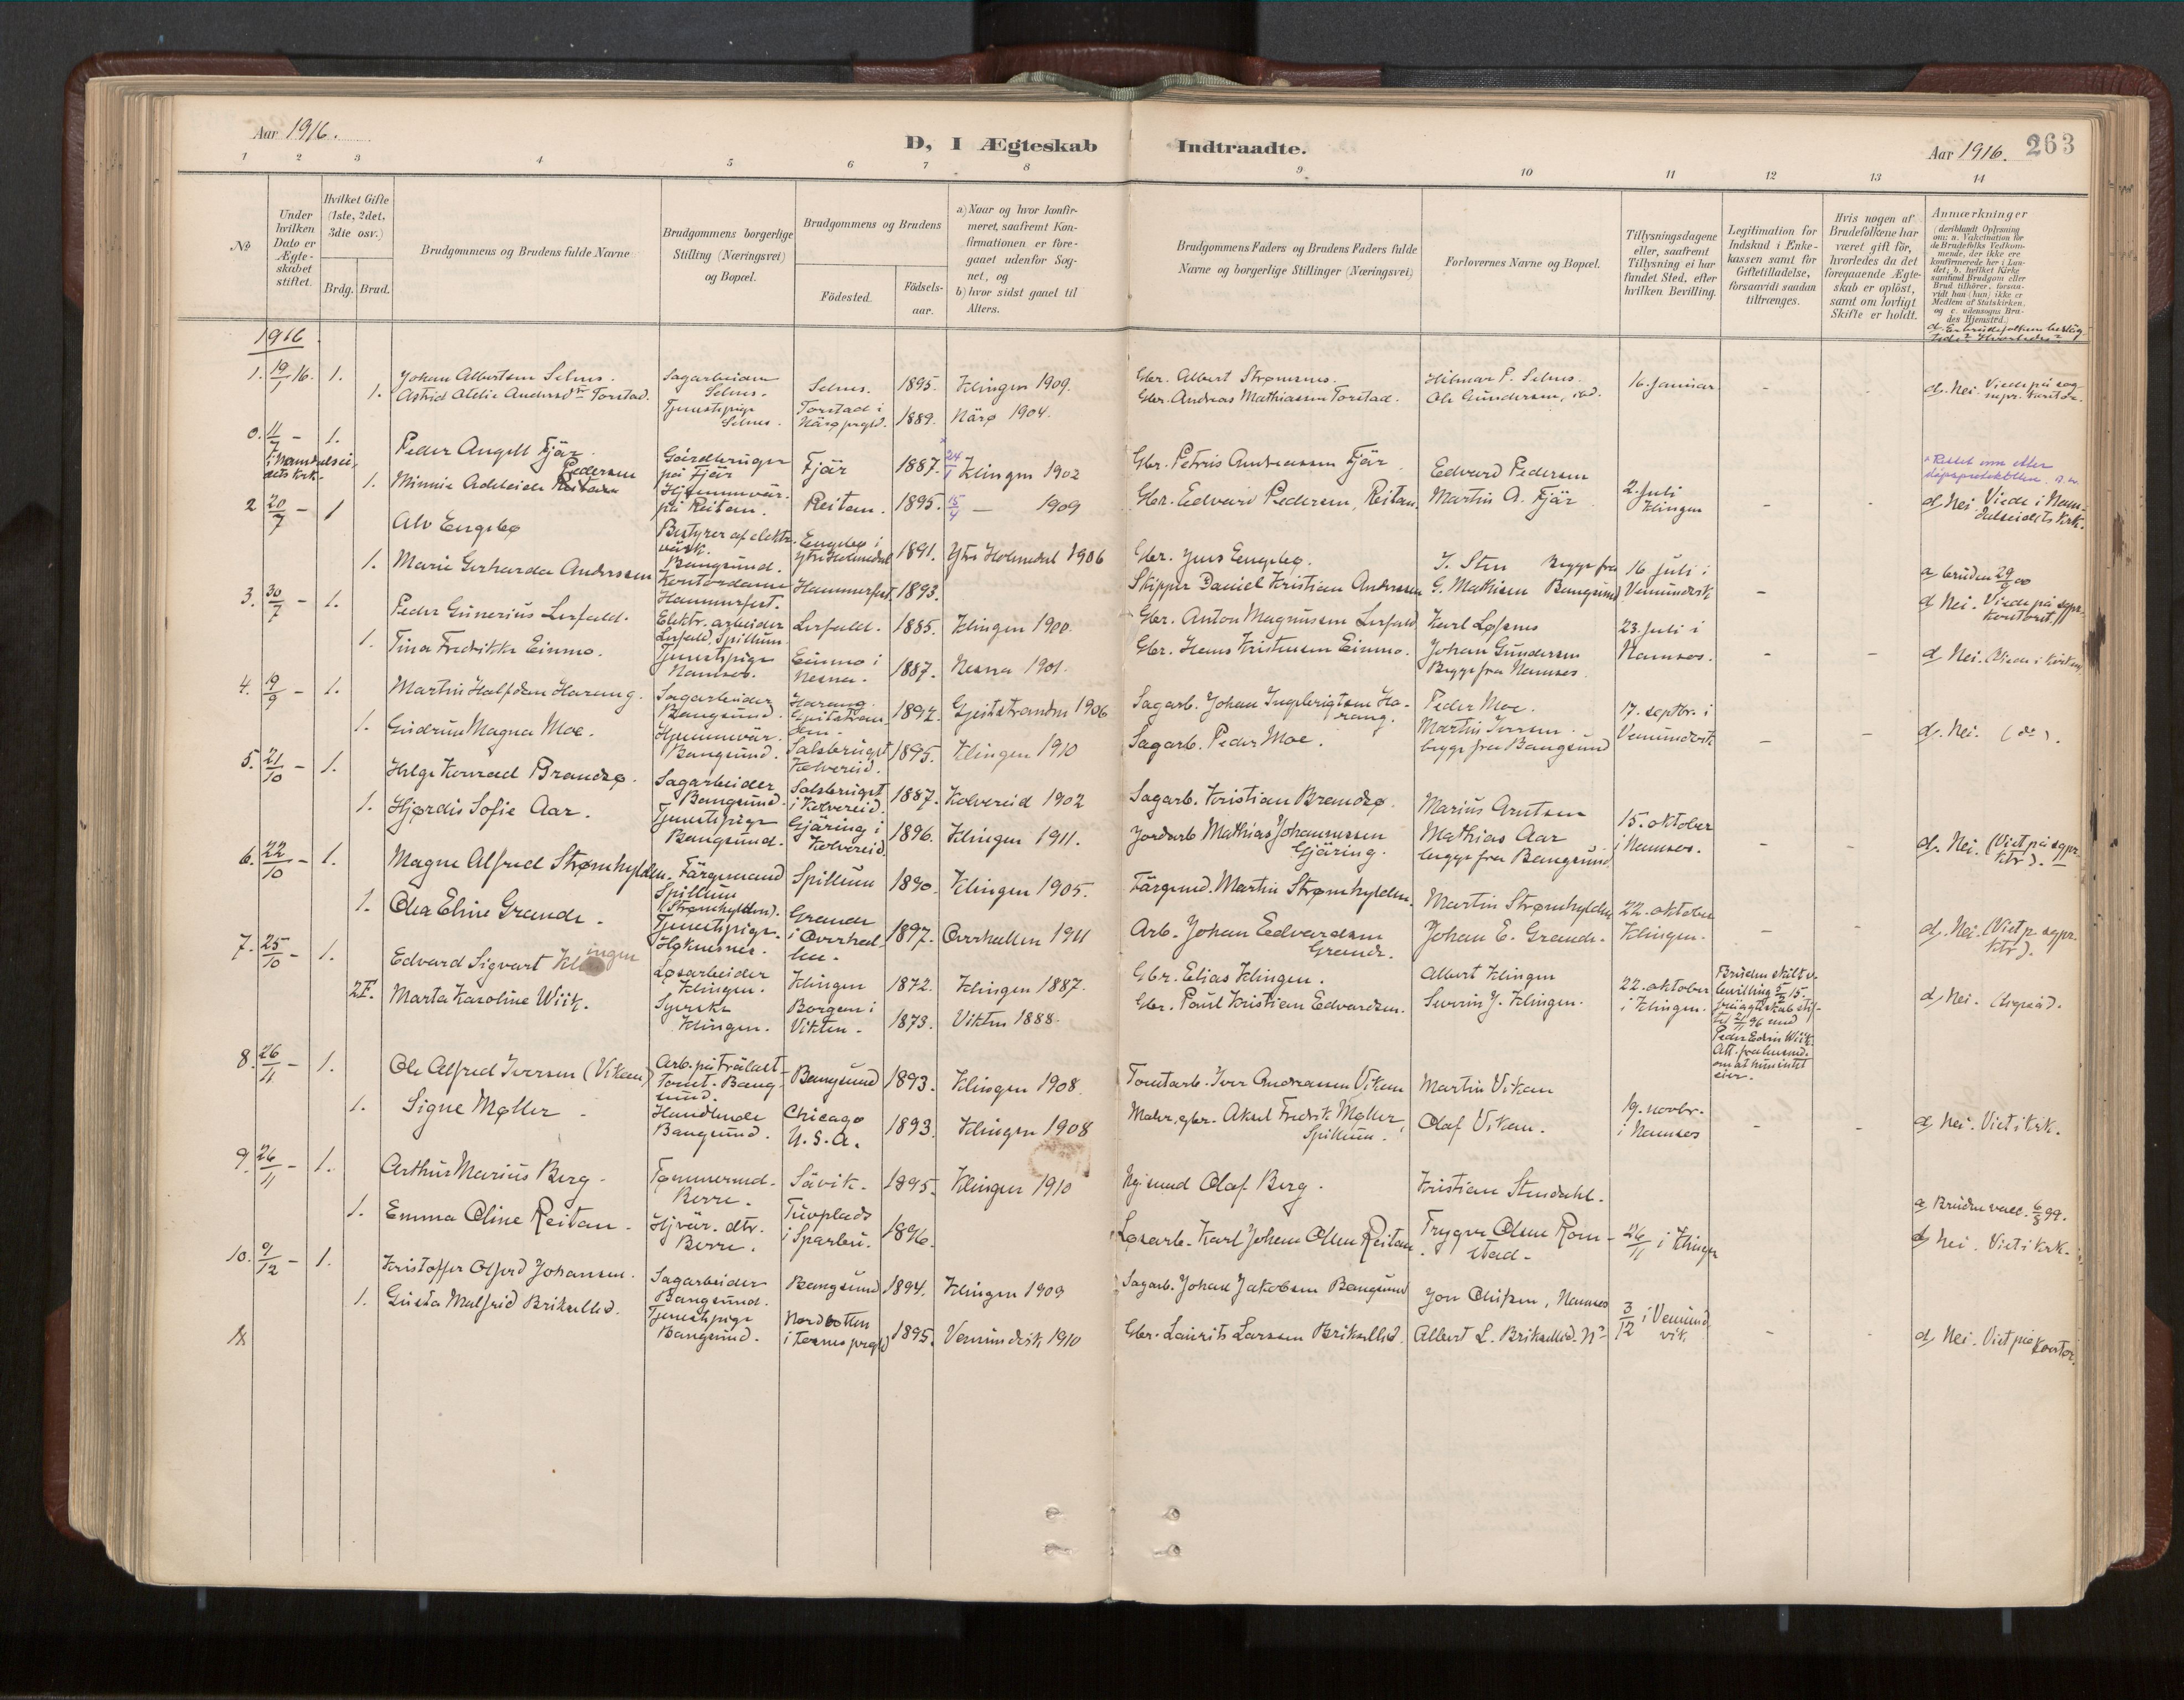 Aar 1916.
D, I Ægteskab Indtraadte.
Aar 1916. 263
1 2 3 4 5 6 7 8 9 10 11 12 13 14
№
Under hvilken Dato er Ægteskabet stiftet.
Hvilket Gifte (1ste, 2det, 3die osv.)
Brdg. Brud.
Brudgommens og Brudens fulde Navne
Brudgommens borgerlige Stilling (Næringsvei) og Bopæl.
Brudgommens og Brudens
Födested.
Födselsaar.
a) Naar og hvor konfirmeret, saafremt Konfirmationen er foregaaet udenfor Sognet, og
b) hvor sidst gaaet til Alters.
Brudgommens Faders og Brudens Faders fulde Navne og borgerlige Stillinger (Næringsvei)
Forlovernes Navne og Bopæl.
Tillysningsdagene eller, saafremt Tillysning ei har fundet Sted, efter hvilken Bevilling.
Legitimation for Indskud i Enkekassen samt for Giftetilladelse, forsaavidt saadan tiltrænges.
Hvis nogen af Brudefolkene har været gift før, hvorledes da det foregaaende Ægteskab er opløst, samt om lovligt Skifte er holdt.
Anmærkninger (deriblandt Oplysning om: a. Vakcination for de Brudefolks Vedkommende, der ikke ere konfirmerede her i Landet; b. hvilket Kirkesamfund Brudgom eller Brud tilhörer, forsaavidt han (hun) ikke er Medlem af Statskirken, og c. udensogns Brudes Hjemsted.)
1916
1. 19/1 16. 1. Johan Albertsen Selnes. Sagarbeider Selnes. Selnes. 1895. Klingen 1909. Gbr. Albert Strømsnes. Hilmar P. Selnes. 16. januar - - d. Nei.
1. Astrid Aldie Andersdtr Torstad. Tjenestepige Selnes. Torstad i Nærø prgld. 1889. Nærø 1904. Gbr. Andreas Mathiassen Torstad. Ole Gundersen, ibd.
0. 11/7 - 1. Peder Angell Fjär. Gårdbruger på Fjär Fjär 1887. 24/1 Klingen 1902 Gbr. Petris Andreassen Fjär Edvard Pedersen 2. juli Klingen
1. Minnie Adeleide Pedersen Reitan Hjemmevär. på Reitan. Reitan. 1895. 15/4 — 1909 Gbr. Edvard Pedersen, Reitan. Martin A. Fjär - - d. Nei Viede i Namdalseidets Kirk.
2 20/7 - 1 Alv Engebø Bestyrer af elektr. värk. Bangsund. Engebø i Ytre Holmedal 1891. Ytre Holmedal 1906 Gbr. Jens Engebø. J. Sten Begge fra 16. juli i
1. Marie Gerharda Andersen Kontordame Hammerfest. Hammerfest. 1893. Skipper Daniel Kristian Andersen G. Mathisen Bangsund Vemundvik - a. bruden 29/9 00 d. Nei. Viede på sgpr. kontoret
3. 30/7 - 1. Peder Gunerius Lerfald. Elektr. arbeider Lerfald. Spillum. Lerfald. 1885. Klingen 1900. Gbr. Anton Magnussen Lerfald Karl Løfsnes 23. juli i
1. Tina Fredrikke Einmo. Tjenestepige Namsos. Einmo i Nesna. 1887. Nesna 1901. Gbr. Hans Kristensen Einmo. Johan Gundersen Begge fra Namsos. Namsos. - - d. Nei. Viede i kirken.
4. 19/9 - 1. Martin Halfdan Harang. Sagarbeider Bangsund. Harang. Geitstranden. 1892. Geitstranden 1906 Sagarb. Johan Ingebrigtsen Harang. Peder Moe. 17. septbr. i
1. Gudrun Magna Moe. Hjemmevär. Bangsund. Salsbruget Kolvereid. 1895. Klingen 1910 Sagarb. Peder Moe. Martin Iversen. begge fra Bangsund Vemundvik - - d. Nei. (do).
5. 21/10 - 1. Helge Konrad Brandsø. Sagarbeider Bangsund. Salsbruget i Kolvereid. 1887. Kolvereid 1902 Sagarb. Kristian Brandsø. Marius Arntsen 15. oktober
1. Hjørdis Sofie Aar. Tjenestepige Bangsund. Gjäring i Kolvereid. 1896. Klingen 1911. Jordarb. Mathias Johannessen Gjäring. Mathias Aar begge fra Bangsund i Namsos. - - d. Nei. (Viet på sgpr. ktr). —
6. 22/10 - 1. Magne Alfred Strømhylden. Färgemand Spillum (Strømhylden). Spillum 1890. Klingen 1905. Färgemd. Martin Strømhylden. Martin Strømhylden 22. oktober
1. Olea Eline Grande. Tjenestepige. Høknesnes. Grande i Overhallen. 1897. Overhallen 1911 Arb. Johan Edvardsen Grande. Johan E. Grande. Klingen. - - d. Nei. (Viet p. sgpr. ktr).
7. 25/10 - 1. Edvard Sigvart Klingen Løsarbeider Klingen. Klingen 1872. Klingen 1887. Gbr. Elias Klingen. Albert Klingen 22. oktober
2E. Marta Karoline Wiik. Syerske Klingen. Borgen i Vikten. 1873. Vikten 1888. Gbr. Paul Kristian Edvardsen. Severin J. Klingen. i Klingen. Bruden skilt v. bevilling 5/2 15. fra ægteskab stiftet 21/11 96 med Peder Edvin Wiik. Att. fra lensmd. om at hun intet eier. d. Nei.
8. 26/11 - 1. Ole Alfred Iversen (Vikan) Arb. på trälast Tomt. Bangsund. Bangsund 1893. Klingen 1908. Tomtarb. Iver Andreassen Vikan Martin Vikan 19. novbr.
1. Signe Møller. Handlende Bangsund. Chicago U.S.A. 1893. Klingen 1908 Maler, gbr. Aksel Fredrik Møller, Spillum. Olaf Vikan. i Namsos - - d. Nei. Viet i kirk.
9. 26/11 - 1. Arthur Marius Berg. Tømmermd. Berre. Sävik. 1895. Klingen 1910 Olaf Berg. Kristian Stendahl.
1. Emma Oline Reitan. Hjvär. dtr. Berre. Tuvplads i Sparbu. 1896. Løsarb. Karl Johan Olsen Reitan Trygve Olsen Romstad. 26/11 i Klingen a. Bruden vacc. 6/8 99. d. Nei. Viet i kirk.
10. 9/12 - 1. Kristoffer Alfred Johansen. Sagarbeider Bangsund. Bangsund 1894. Klingen 1909 Sagarb. Johan Jakobsen Bangsund Jon Olifsen, Namsos
1. Gusta Malfrid Brikselled. Tjenestepige Bangsund. Nordbotten i Foesnes prgld 1895. Vemundvik 1910 Gbr. Laurits Larssen Brikselled. Albert L. Brikselled. 3/12 i Vemundvik. - - d. Nei. Viet på kontor.